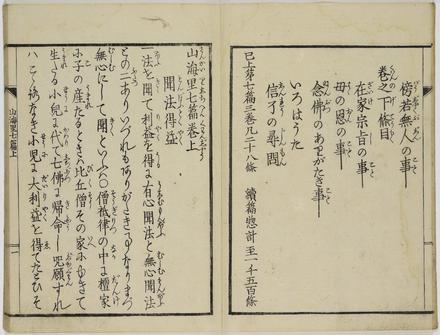 傍若無人の事
巻之下 條目
在家宗旨の事
母の恩の事
念佛のありがたき事
いろはうた
信了の尋問
已上第七篇三巻凡二十八條 續稿惣計至一千五百條
山海里七篇巻上
聞法得益
一法を聞て利益を得るに有心聞法と無心聞法
との二ありいづれもありがたき
無心にして聞といへ〇僧祇律の中に檀家
小子の産たるときに比丘僧その家にゆきて
生たる小児に代て七佛に帰命し咒願すれ
小児に大利益を得てたとひそ
山海里七篇上
一